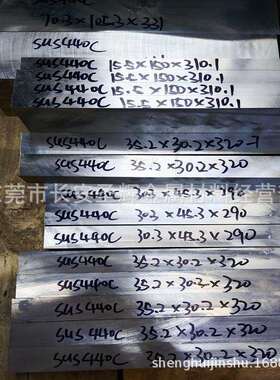 70.3×105.3×331
SUS440C
SUS440C 15.5×150×310.1
SUS440C 15.5×150×310.1
SUS440C 15.5×150×310.1
SUS440C 15.5×150×310.1
SUS440C 35.2×30.2×320
SUS440C 35.2×30.2×320
SUS440C 30.3×45.3×290
SUS440C 30.3×45.3×290
SUS440C 30.3×45.3×290
SUS440C 35.2×30.2×320
SUS440C 35.2×30.2×320
SUS440C 35.2×30.2×320
SUS440C 35.2×30.2×320
SUS440C 30.2×320
东莞市长
经营
shenghuijinshu.1688